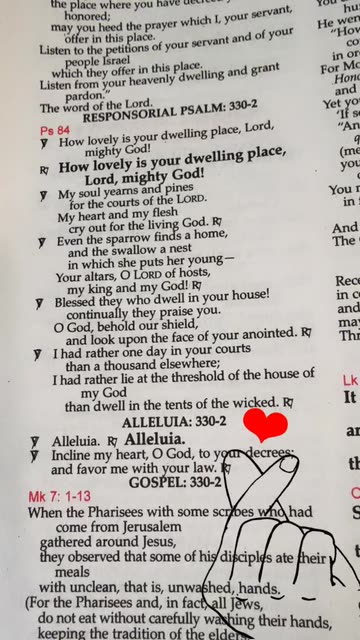 the place where you have
honored;
may you heed the prayer which I, your servant,
offer in this place.
Listen to the petitions of your servant and of your
people Israel
which they offer in this place.
Listen from your heavenly dwelling and grant
pardon."
The word of the Lord.
RESPONSORIAL PSALM: 330-2
Ps 84
℣ How lovely is your dwelling place, Lord,
mighty God!
℟ How lovely is your dwelling place,
Lord, mighty God!
℣ My soul yearns and pines
for the courts of the LORD.
My heart and my flesh
cry out for the living God. ℟
℣ Even the sparrow finds a home,
and the swallow a nest
in which she puts her young—
Your altars, O LORD of hosts,
my king and my God! ℟
℣ Blessed they who dwell in your house!
continually they praise you.
O God, behold our shield,
and look upon the face of your anointed. ℟
℣ I had rather one day in your courts
than a thousand elsewhere;
I had rather lie at the threshold of the house of
my God
than dwell in the tents of the wicked. ℟
ALLELUIA: 330-2
℣ Alleluia. ℟ Alleluia.
℣ Incline my heart, O God, to your decrees;
and favor me with your law. ℟
GOSPEL: 330-2
Mk 7: 1-13
When the Pharisees with some scribes who had
come from Jerusalem
gathered around Jesus,
they observed that some of his disciples ate their
meals
with unclean, that is, unwashed, hands.
(For the Pharisees and, in fact, all Jews,
do not eat without carefully washing their hands,
keeping the tradition of the elders.
He went
"How
For Mo
and
Yet yo
'If s
"An
(me
you
You
in
And
The
Rece
in c
and
may
Lk
It